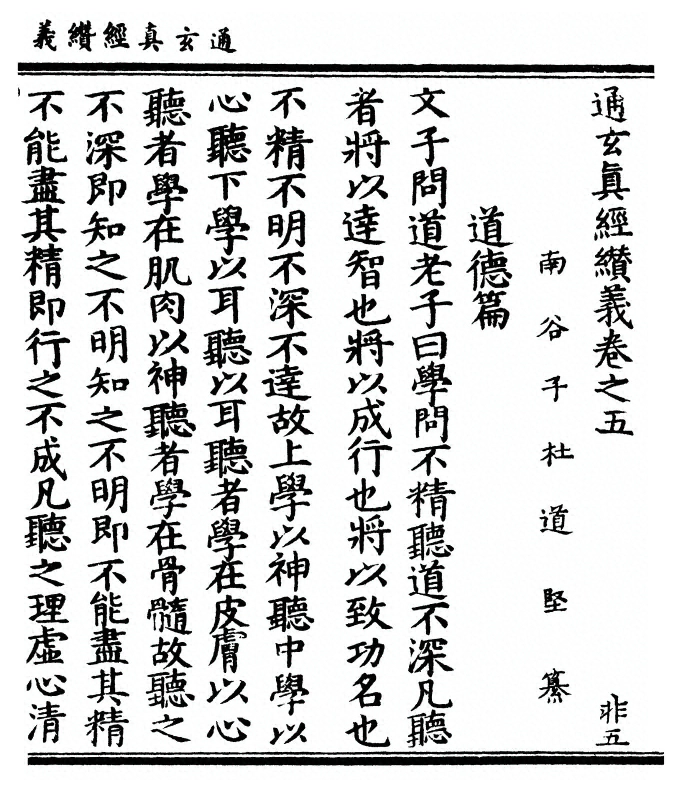 通玄真經纘義
通玄真經纘義卷之五
非五
南谷子杜道堅纂
道德篇
文子問道老子曰學問不精聽道不深凡聽
者將以達智也將以成行也將以致功名也
不精不明不深不達故上學以神聽中學以
心聽下學以耳聽以耳聽者學在皮膚以心
聽者學在肌肉以神聽者學在骨髓故聽之
不深即知之不明知之不明即不能盡其精
不能盡其精即行之不成凡聽之理虛心清